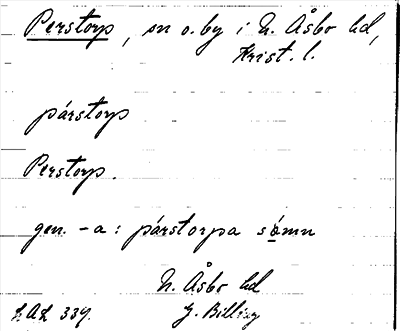 Perstorp, sn o. by i N. Åsbo hd,
Krist. l.
párstorp
Perstorp.
gen. -a: párstorpa sómn
N. Åsbo hd
LAL 339. G. Billing